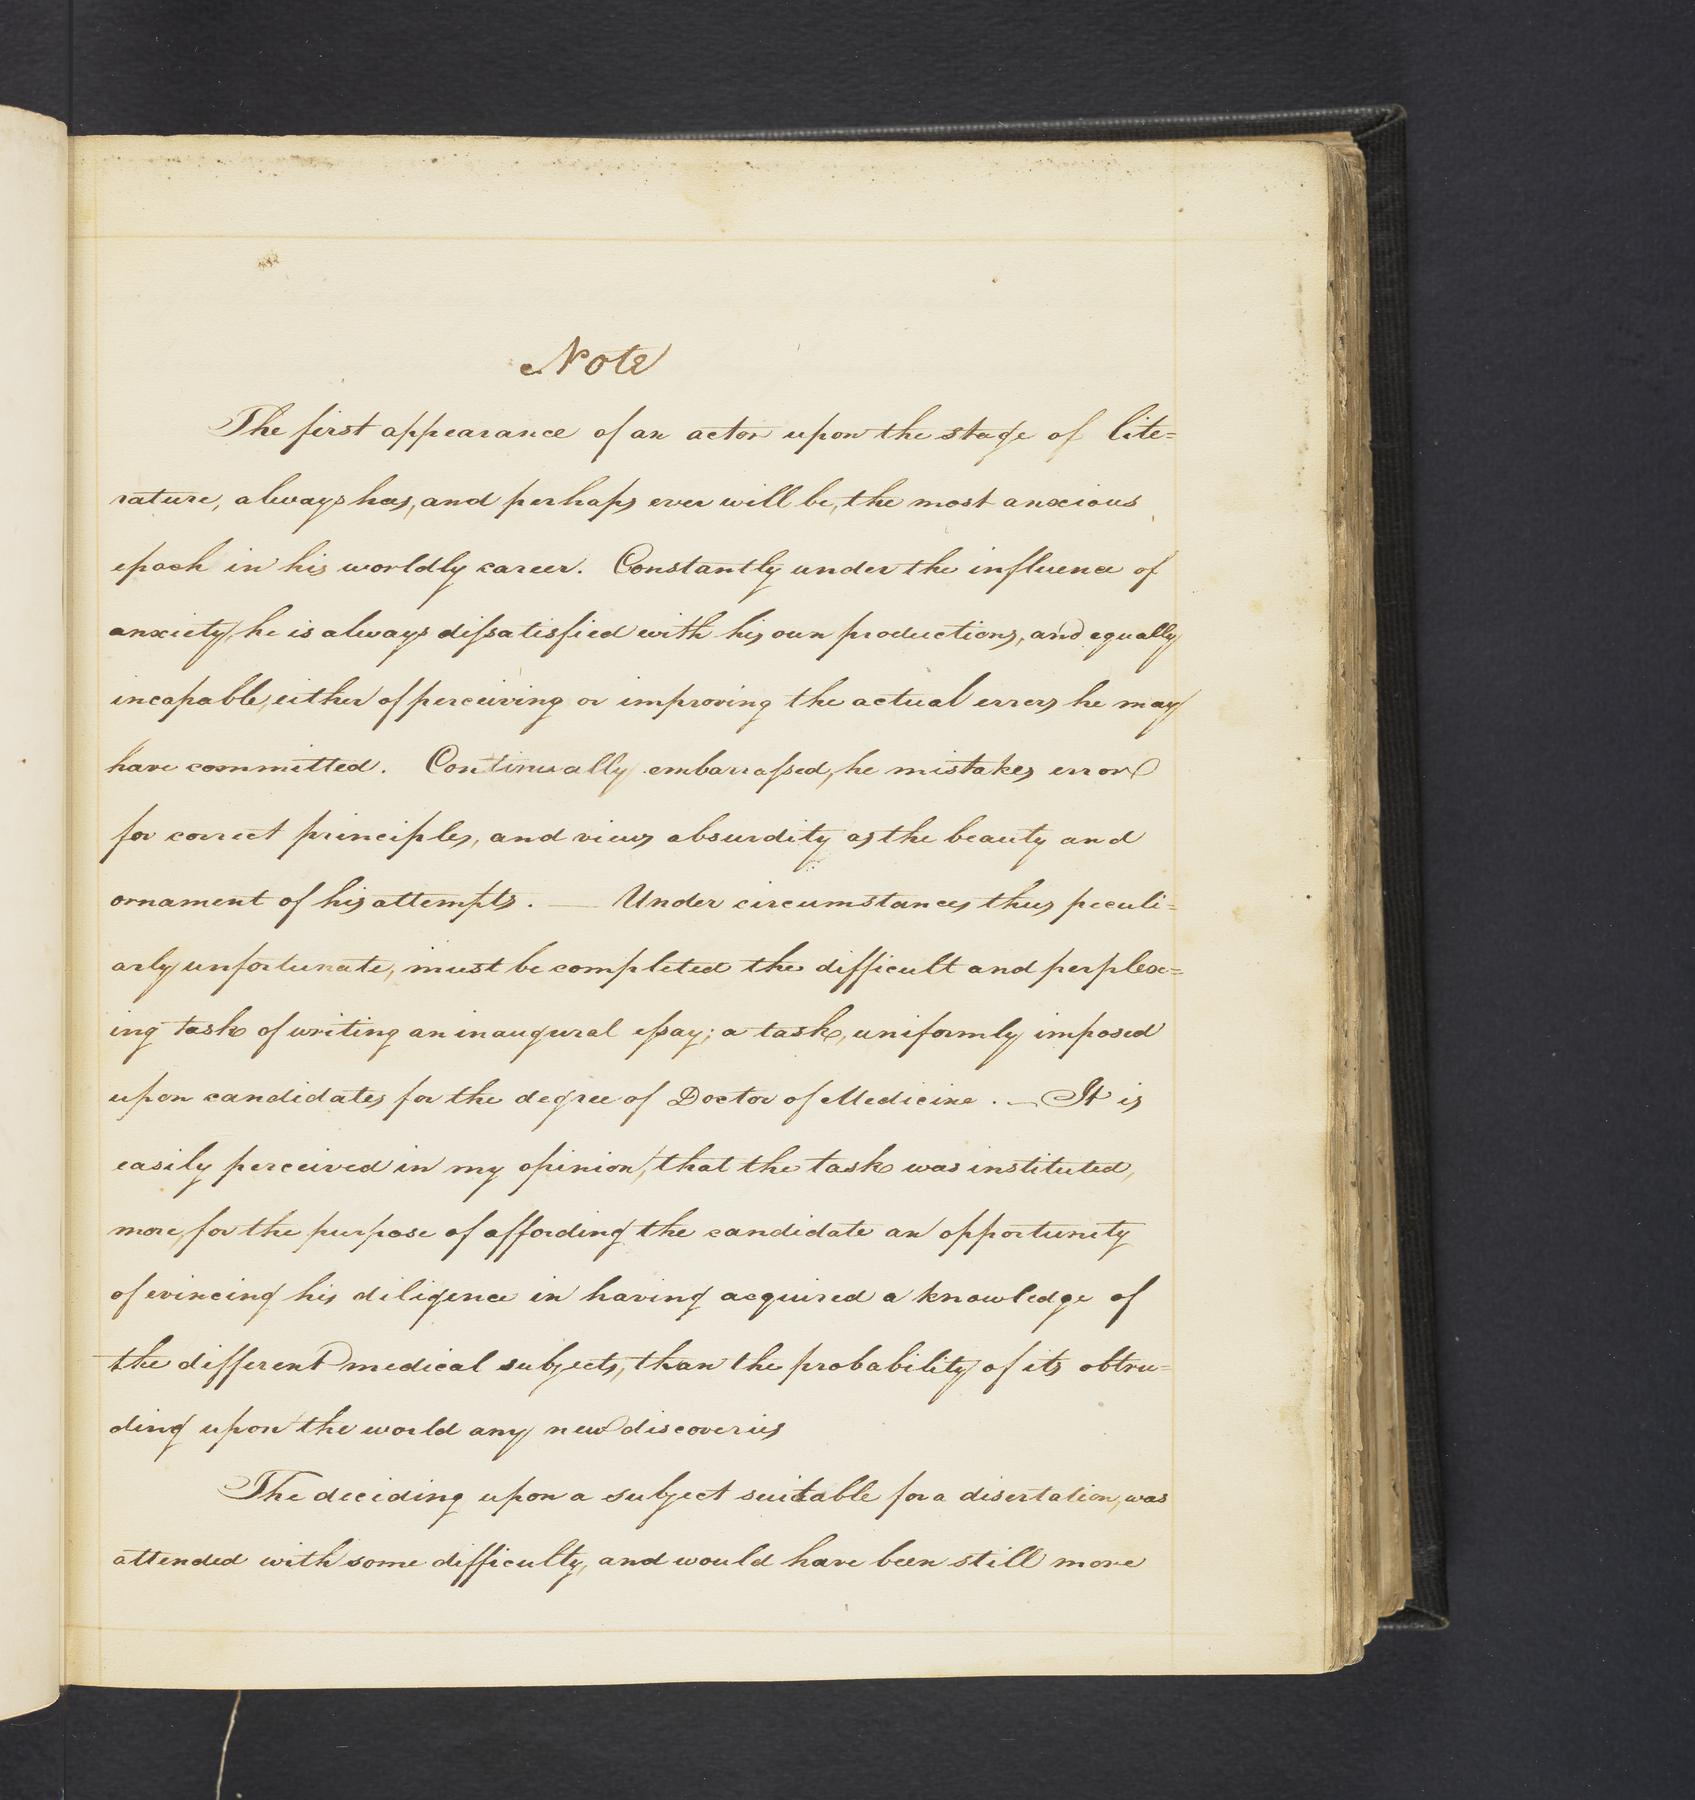 Note
The first appearance of an actor upon the stage of lite=
rature, always has, and perhaps ever will be, the most anxious
epoch in his worldly career. Constantly under the influence of
anxiety, he is always dissatisfied with his own productions, and equally
incapable, either of perceiving or improving the actual errors he may
have committed. Continually embarrassed, he mistakes error
for correct principles, and views absurdity as the beauty and
ornament of his attempts. — Under circumstances thus peculi=
arly unfortunate, must be completed the difficult and perplex=
ing task of writing an inaugural essay; a task, uniformly imposed
upon candidates for the degree of Doctor of Medicine. — It is
easily perceived in my opinion, that the task was instituted,
more, for the purpose of affording the candidate an opportunity
of evincing his diligence in having acquired a knowledge of
the different medical subjects, than the probability of its obtru=
ding upon the world any new discoveries
The deciding upon a subject suitable for a disertation, was
attended with some difficulty, and would have been still more